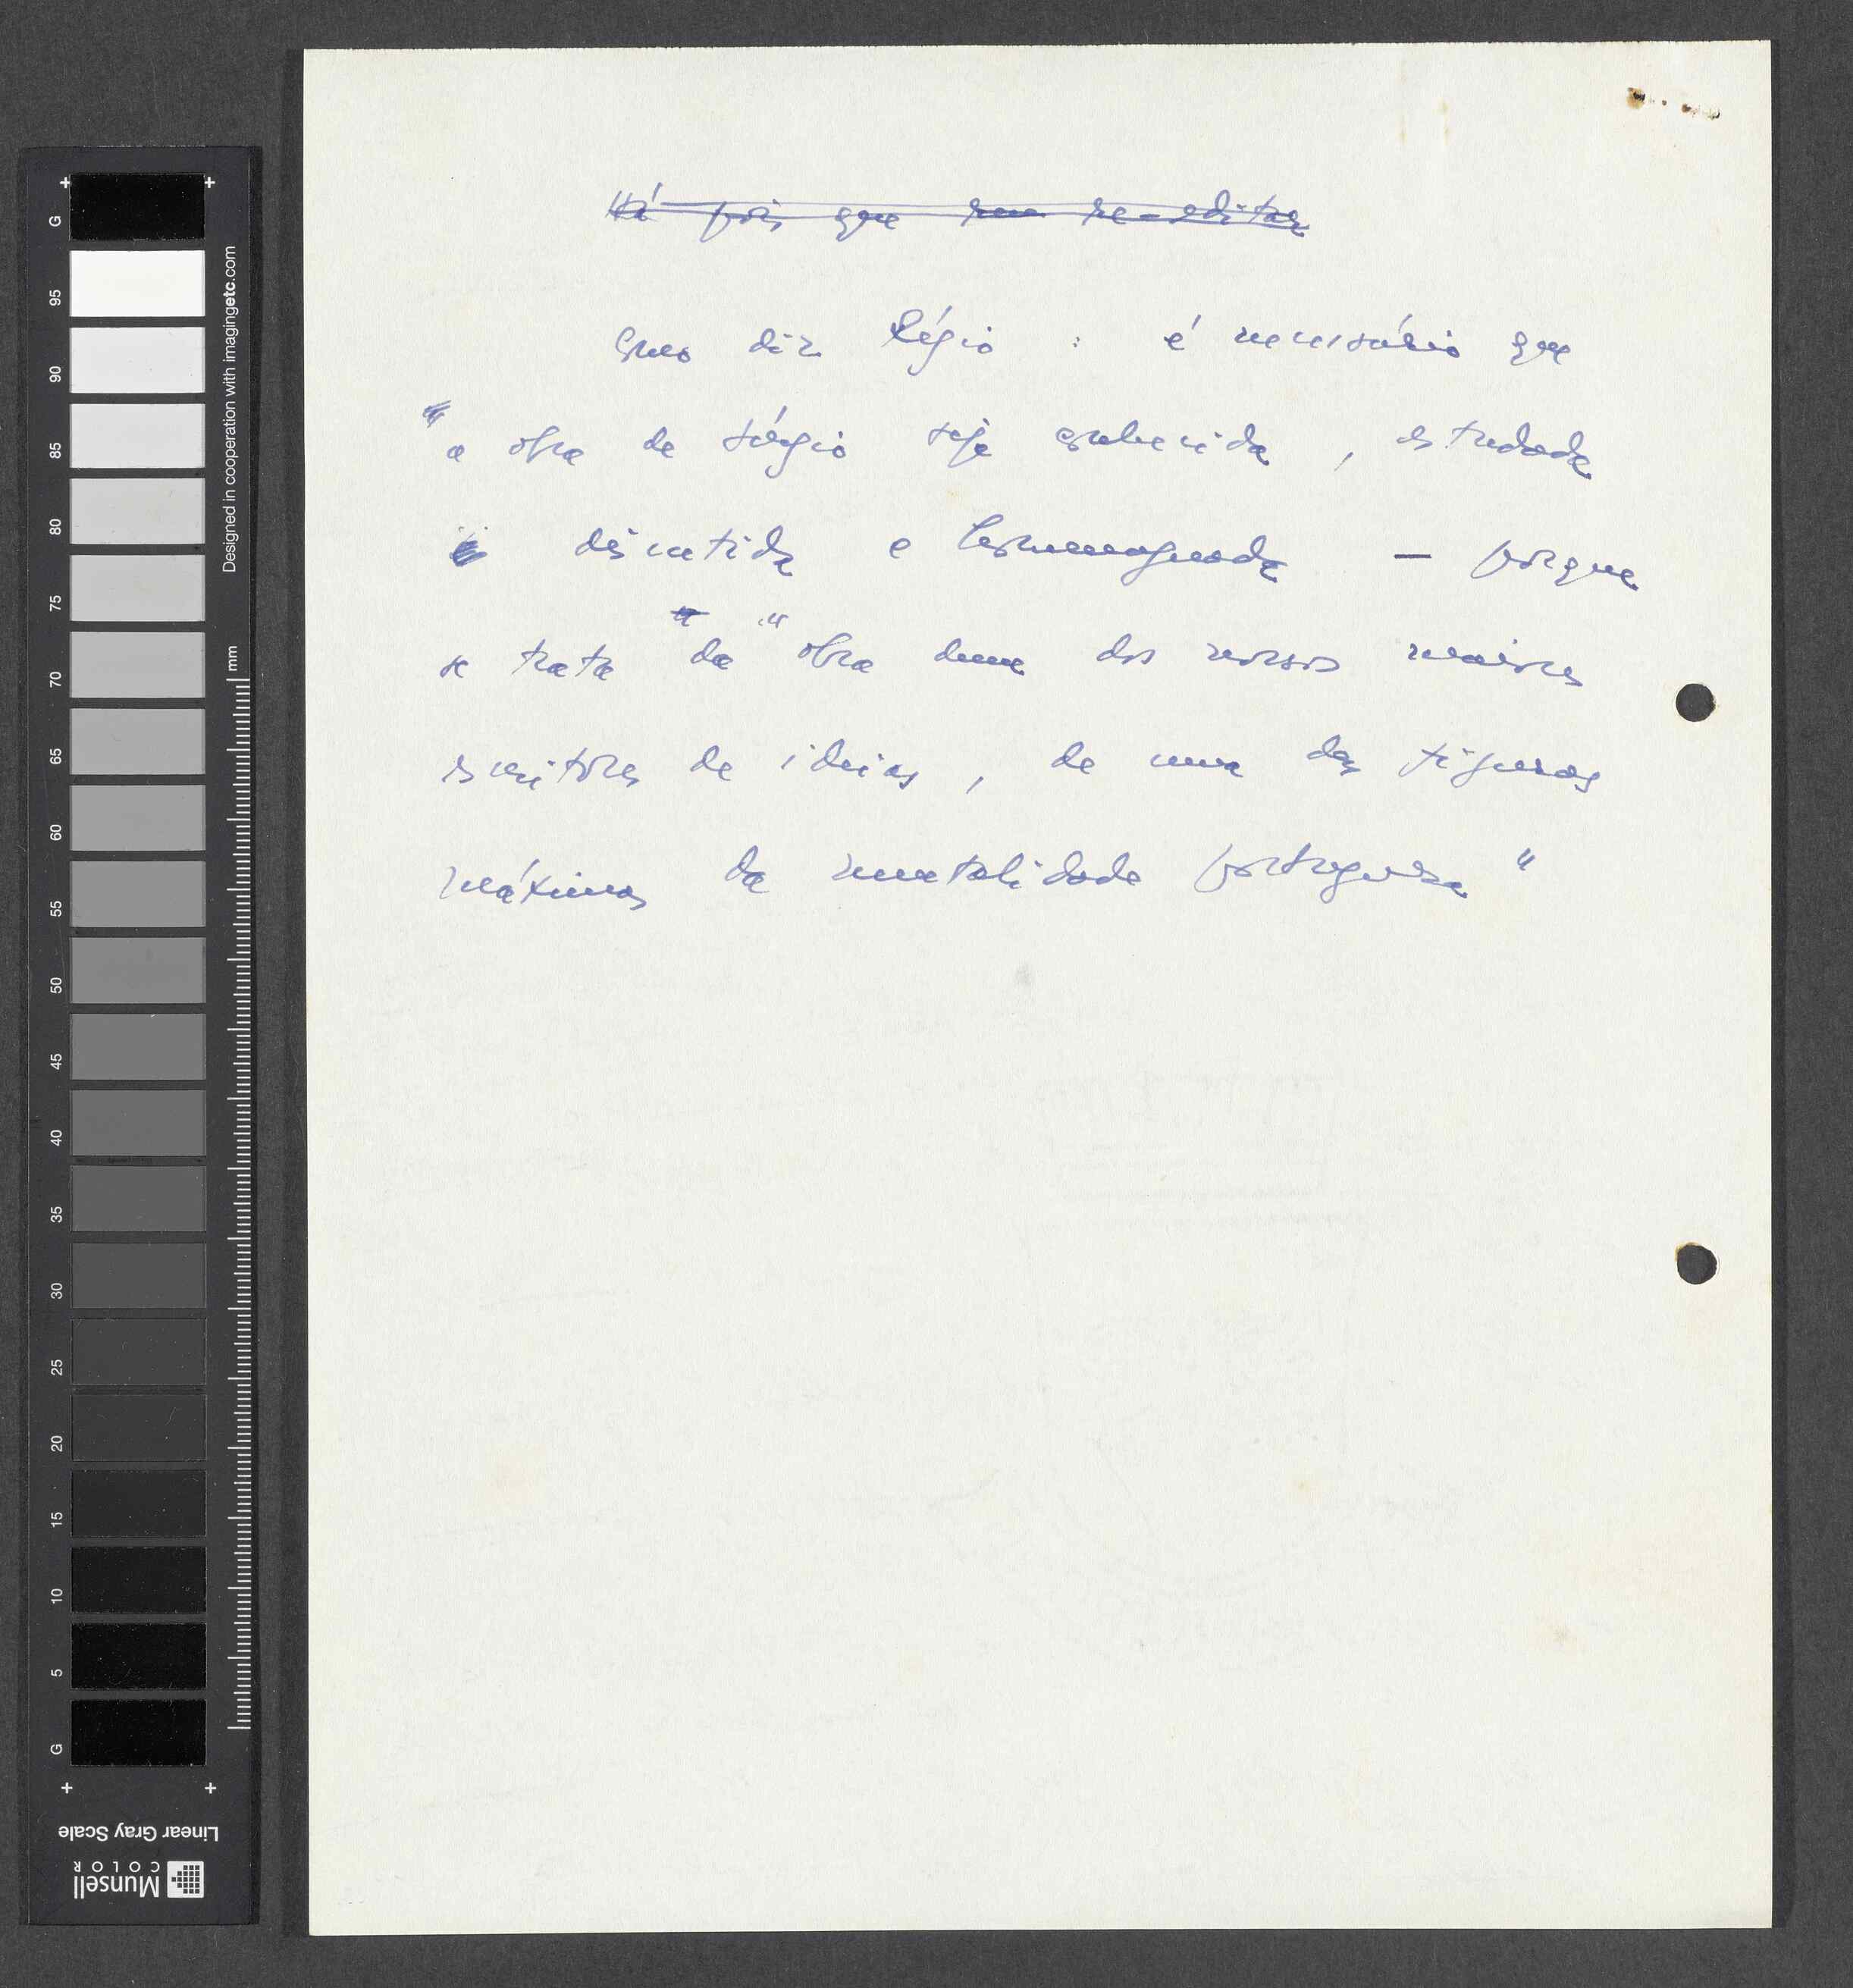 Há pois que re-editar
Como diz Régio : é necessário que
"a obra de Sérgio seja conhecida , estudada
discutida e homenageada — porque
se trata da "obra dum dos nossos maiores
escritores de ideias , de uma das figuras
máximas da mentalidade portuguesa "
G
95
90
85
80
75
70
65
60
55
50
45
40
35
30
25
20
15
10
5
G
mm
Designed in cooperation with imagingetc.com
Linear Gray Scale
Munsell
COLOR